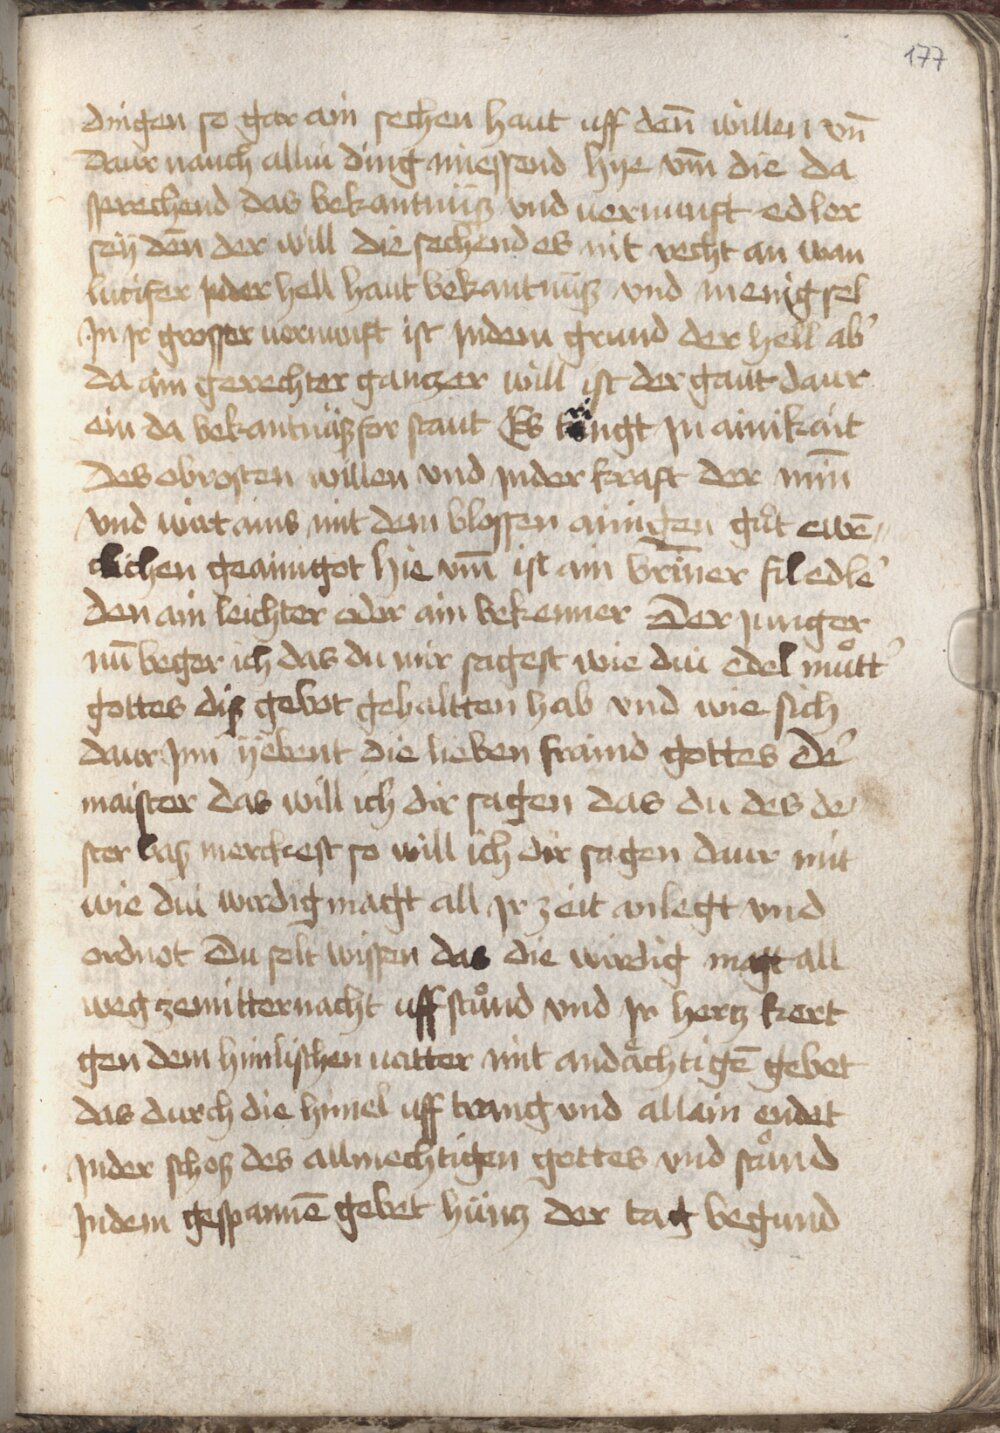 177
dingen so gar ain sechen haut uff den̄ willen vn̄
Daur nauch alliu ding miessend hye vm̄ die da
sprechend das bekantnüß vnd uernunft edler
seÿ den̄ der will die sechend es nit recht an wan
lucifer jn der hell haut bekantnüß vnd menig sel
Jn jr grosser uernunft ist jndem grund der hell ab'
da ain gerechter gantzer will ist der gaut daur
ein da bekantnüß for staut Es tringt jn ainikait
des obrosten willen vnd jnder kraft der min̄
vnd wirt ains mit dem blossen ainigen gůt ewē
clichen geainigot hie vm̄ ist ain brin̄er fil edle'
den ain leichter oder ain bekenner Der junger
nū beger ich das du mir sagest wie diu edel můtt'
gottes diß gebot gehaltten hab vnd wie sich
daur jnn ÿebent die lieben fraind gottes De'
maister das will ich dir sagen das du des de
ster bas merckest so will ich dir sagen daur mit
wie diu wirdig magt all jr zeit anlegt vnd
ordnot Du solt wissen das die wirdig magt all
weg ze mitternacht uff stůnd vnd jr hertz kert
gen dem himlischen uatter mit andächtigē gebet
das durch die himel uff trang vnd allain endet
jnder schoß des allmechtigen gottes vnd stůnd
jndem gespannē gebet hüntz der tag begund